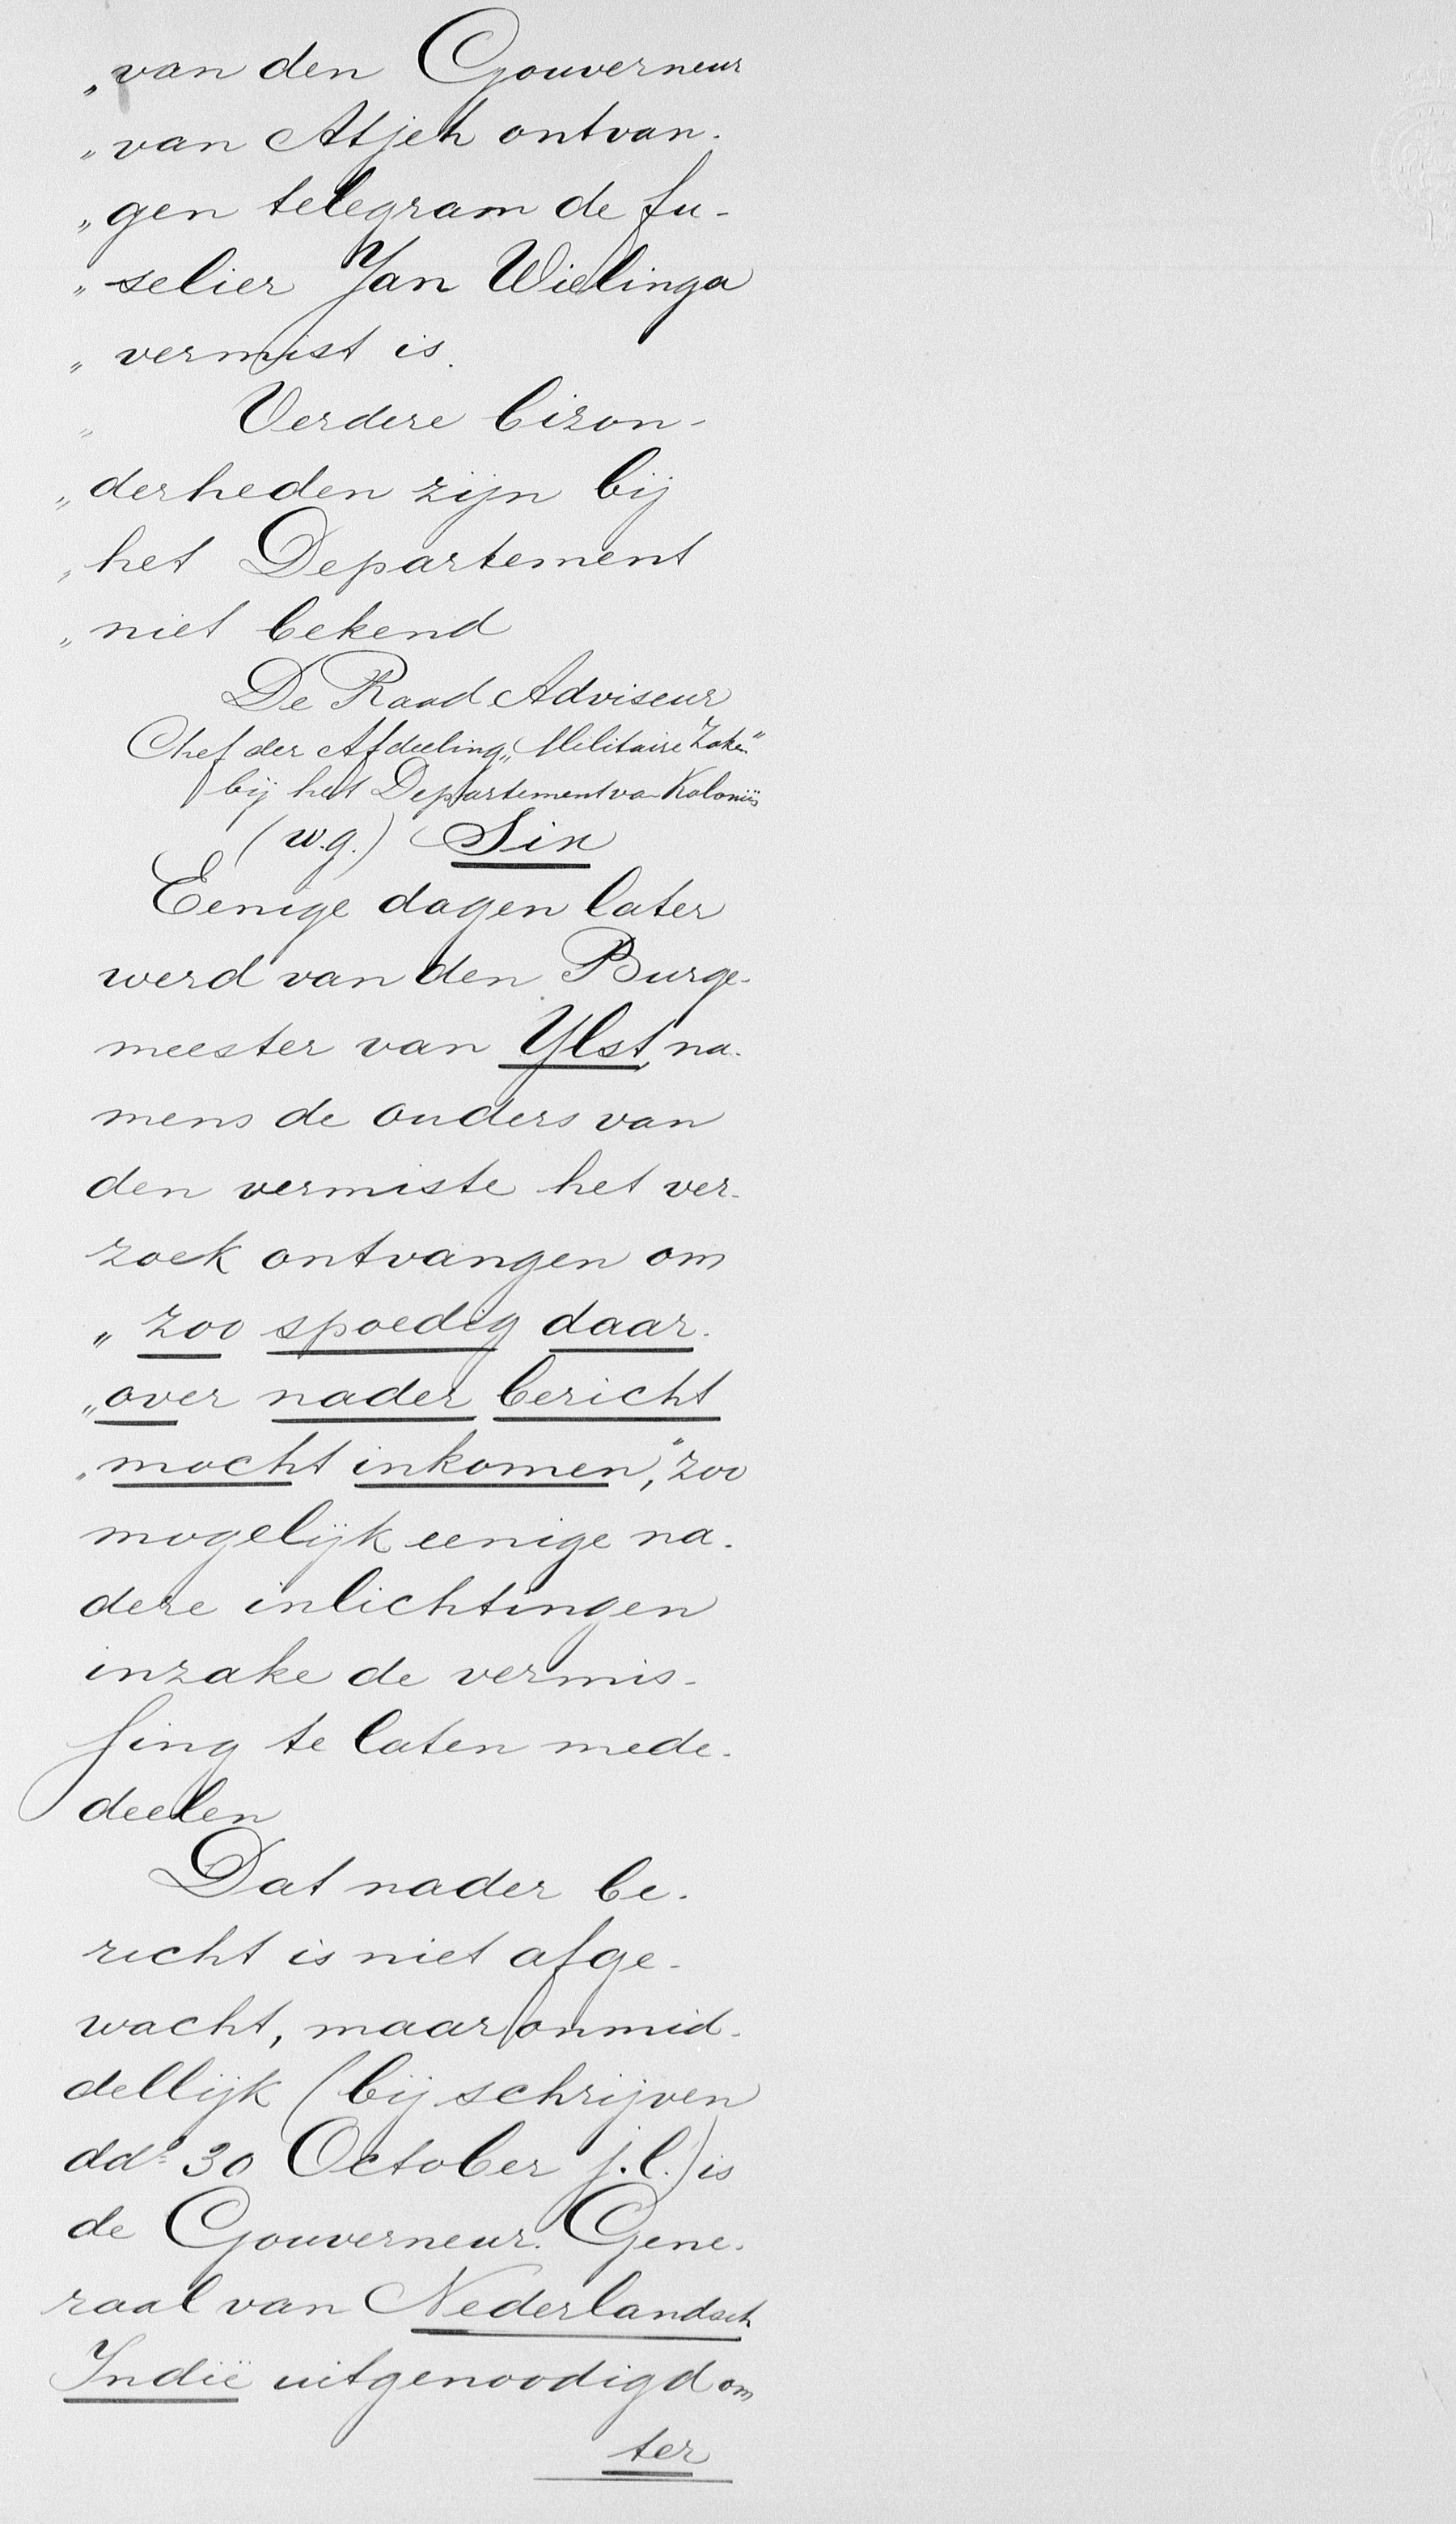 „van den Gouverneur
„van Atjeh ontvan-
„gen telegram de fu-
„selier Jan Wielinga
„vermist is.
„ Verdere bizon-
„derheden zijn bij
„het Departement
„niet bekend
De Raad Adviseur
Chef der Afdeeling „Militaire Zaken"
bij het Departement van Koloniën
(w.g.) Six
Eenige dagen later
werd van den Burge-
meester van Ylst, na-
mens de ouders van
den vermiste het ver-
zoek ontvangen om
„zoo spoedig daar-
„over nader bericht
„mocht inkomen," zoo
mogelijk eenige na-
dere inlichtingen
inzake de vermis-
sing te laten mede-
deelen
Dat nader be-
richt is niet afge-
wacht, maar onmid-
dellijk (bij schrijven
dd° 30 October j.l.) is
de Gouverneur-Gene-
raal van Nederlandsch
Indië uitgenoodigd om
ter